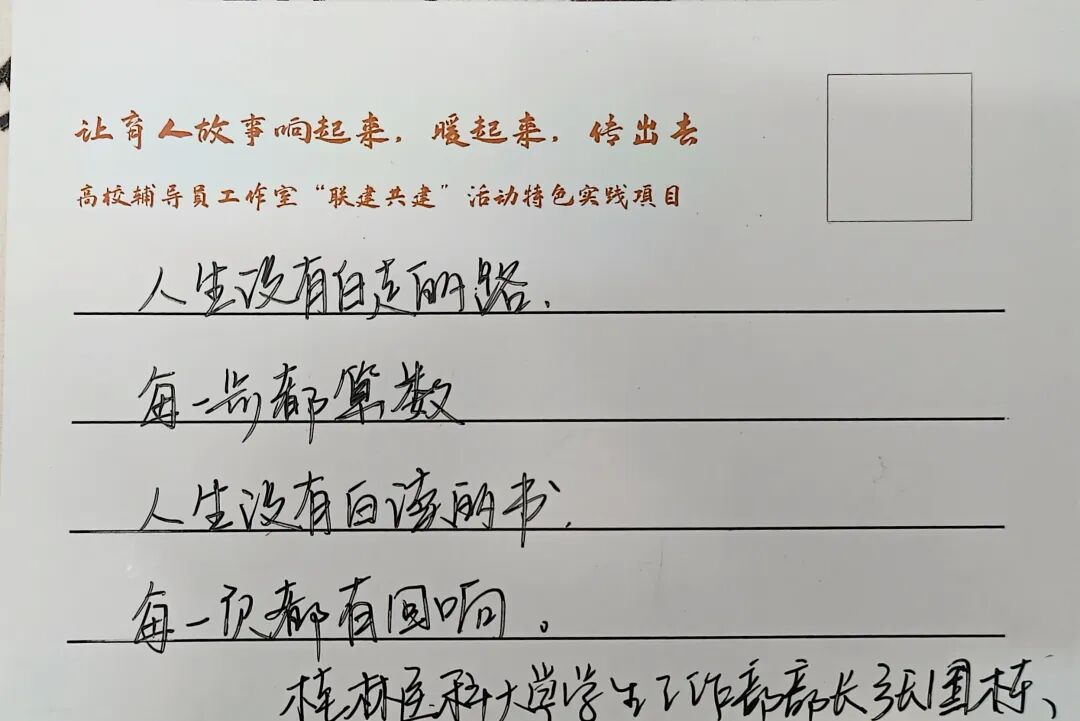 让育人故事响起来，暖起来，传出去
高校辅导員工作室“联建共建”活动特色实践項目
人生没有白走的路、
每一步都算数
人生没有白读的书、
每一页都有回响。
桂林医科大学学生工作部部长张国栋、